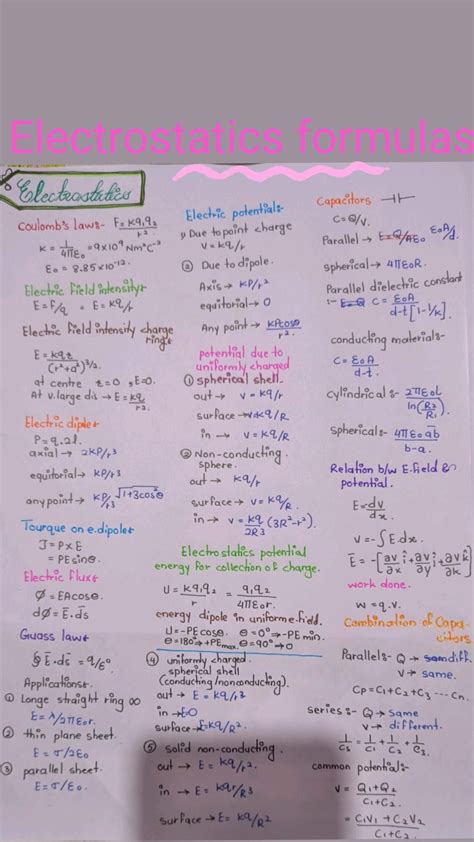 Electrostatics formulas
Electrostatics
Coulomb's laws:- F = kq₁q₂/r²
K = 1/4πε₀ = 9×10⁹ Nm²C⁻²
ε₀ = 8.85×10⁻¹².
Electric field intensity:-
E = F/q = E = kq/r²
Electric field intensity charge
ring:-
E = kqx/(r²+a²)^3/2.
at centre x=0, E=0.
At v.large dis → E = kq/r².
Electric diple:-
P = q.2l.
axial → 2KP/r³
equitorial → KP/r³
any point → KP/r³ √1+3cos²θ
Tourque on e.dipole:-
J = P×E
= PE sinθ.
Electric flux:-
Ø = EA cosθ.
dØ = E̅.ds̅
Guass law:-
∮ E̅.ds̅ = q/ε₀.
Applications:-
① Longe straight ring ∞
E = λ/2πε₀r.
② thin plane sheet.
E = σ/2ε₀
③ parallel sheet.
E = σ/ε₀.
Electric potentials:-
① Due to point charge
V = kq/r
② Due to dipole.
Axis → KP/r²
equitorial → 0
Any point → KPcosθ/r².
potential due to
uniformly charged
① spherical shell.
out → V = kq/r
surface → V=kq/R
in → V = Kq/R
② Non-conducting.
sphere.
out → kq/r
surface → V = kq/R.
in → V = kq/2R³ (3R²-r²).
Electrostatics potential
energy for collection of charge.
U = kq₁q₂/r = q₁q₂/4πε₀r.
energy dipole in uniform e-field.
U = -PE cosθ. θ=0° → -PE min.
θ=180° → +PE max, θ=90° → 0
④ uniformly charged.
spherical shell
(conducting/nonconducting).
out → E = kq/r²
in → E=0
surface → E=kq/R².
⑤ solid non-conducting.
out → E = kq/r².
in → E = kqr/R³
surface → E = kq/R²
Capacitors
C = Q/V.
Parallel → ε₀A/d
spherical → 4πε₀R.
Parallel dielectric constant
:- C = ε₀A/d-t[1-1/k].
conducting materials:-
C = ε₀A/d-t.
cylindrical:- 2πε₀L/ln(R₂/R₁).
Sphericals:- 4πε₀ab/b-a
Relation b/w E.field &
potential.
E = -dv/dx.
V = -∫E dx.
E̅ = -[∂v/∂x î + ∂v/∂y ĵ + ∂v/∂k k̂]
work done.
W = q.V.
Combination of Capa-
citors
Parallel:- Q → diff.
V → same.
Cp = C₁+C₂+C₃ --- Cn.
series:- Q → same
V → different.
1/Cs = 1/C₁ + 1/C₂ + 1/C₃
common potential:-
V = Q₁+Q₂/C₁+C₂.
= C₁V₁+C₂V₂/C₁+C₂.